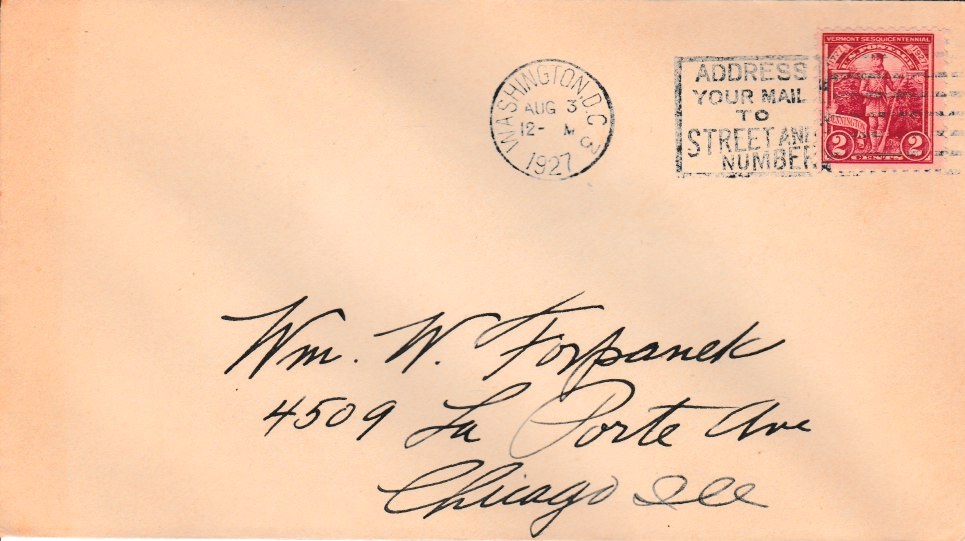 WASHINGTON, D.C. 3
AUG 3
12- M
1927
ADDRESS
YOUR MAIL
TO
STREET AND
NUMBER
VERMONT SESQUICENTENNIAL
U.S. POSTAGE
BENNINGTON
2 2
CENTS
Wm. W. Forpanek
4509 La Porte Ave
Chicago Ill